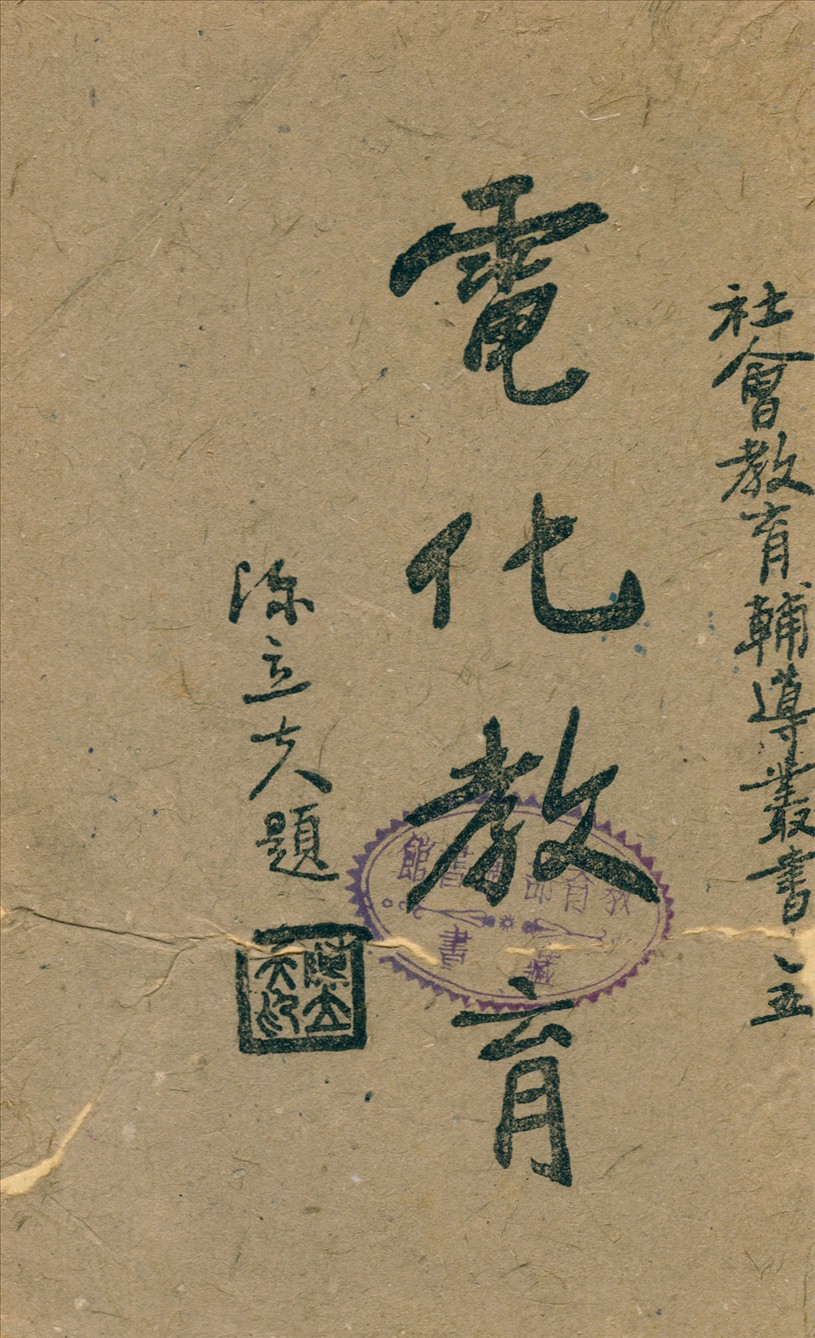 社會教育輔導叢書、五
電化教育
陳立夫題
陳立夫印
教育部圖書館
藏書